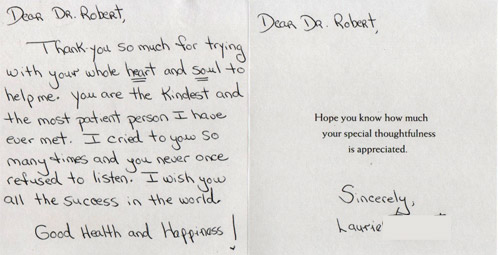 Dear Dr. Robert,
Thank you so much for trying
with your whole heart and soul to
help me. You are the Kindest and
the most patient person I have
ever met. I cried to you so
many times and you never once
refused to listen. I wish you
all the success in the world.
Good Health and Happiness!
Dear Dr. Robert,
Hope you know how much
your special thoughtfulness
is appreciated.
Sincerely,
Laurie